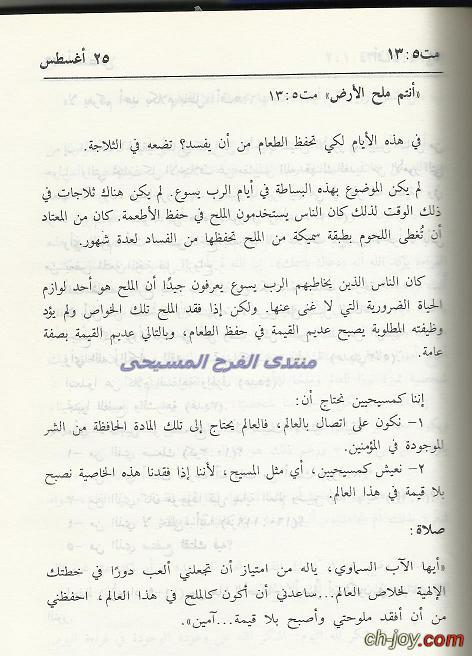 مت٥: ١٣
٢٥ أغسطس
«أنتم ملح الأرض» مت٥: ١٣
في هذه الأيام لكي تحفظ الطعام من أن يفسد؟ تضعه في الثلاجة.
لم يكن الموضوع بهذه البساطة في أيام الرب يسوع. لم يكن هناك ثلاجات في
ذلك الوقت لذلك كان الناس يستخدمون الملح في حفظ الأطعمة. كان من المعتاد
أن تُغطى اللحوم بطبقة سميكة من الملح تحفظها من الفساد لعدة شهور.
كان الناس الذين يخاطبهم الرب يسوع يعرفون جيدًا أن الملح هو أحد لوازم
الحياة الضرورية التي لا غنى عنها. ولكن إذا فقد الملح تلك الخواص ولم يؤد
وظيفته المطلوبة يصبح عديم القيمة في حفظ الطعام، وبالتالي عديم القيمة بصفة
عامة.
منتدى الفرح المسيحى
إننا كمسيحيين نحتاج أن:
١- نكون على اتصال بالعالم، فالعالم يحتاج إلى تلك المادة الحافظة من الشر
الموجودة في المؤمنين.
٢- نعيش كمسيحيين، أي مثل المسيح، لأننا إذا فقدنا هذه الخاصية نصبح
بلا قيمة في هذا العالم.
صلاة:
«أيها الآب السماوي، ياله من امتياز أن تجعلني ألعب دورًا في خطتك
الإلهية لخلاص العالم...ساعدني أن أكون كالملح في هذا العالم، احفظني
من أن أفقد ملوحتي وأصبح بلا قيمة...آمين».
ch-joy.com